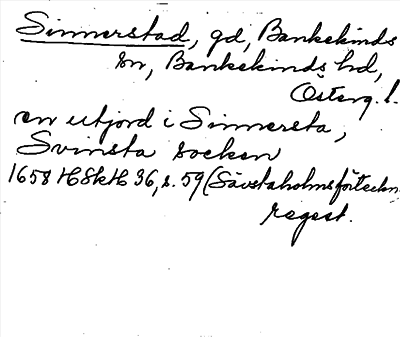 Sinnerstad, gd, Bankekinds
sn, Bankekinds hd,
Österg. l.
en utjord i Sinnersta,
Svinsta socken
1658 HSkH 36, s. 59 (Sävstaholmsförteckn.
regest.